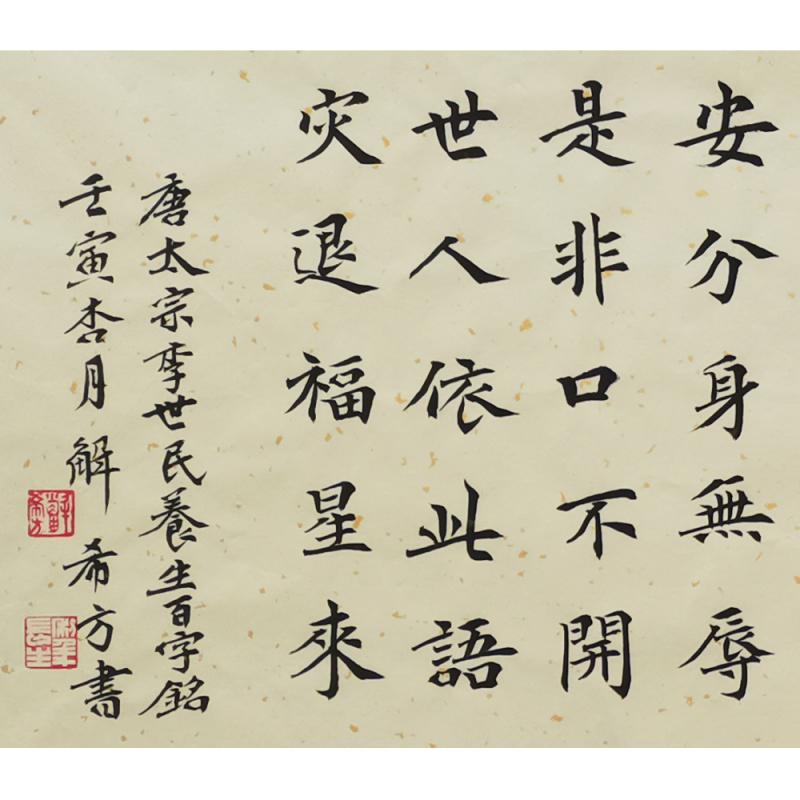 安分身無辱
是非口不開
世人依此語
灾退福星來
唐太宗李世民養生百字銘
壬寅杏月解希方書